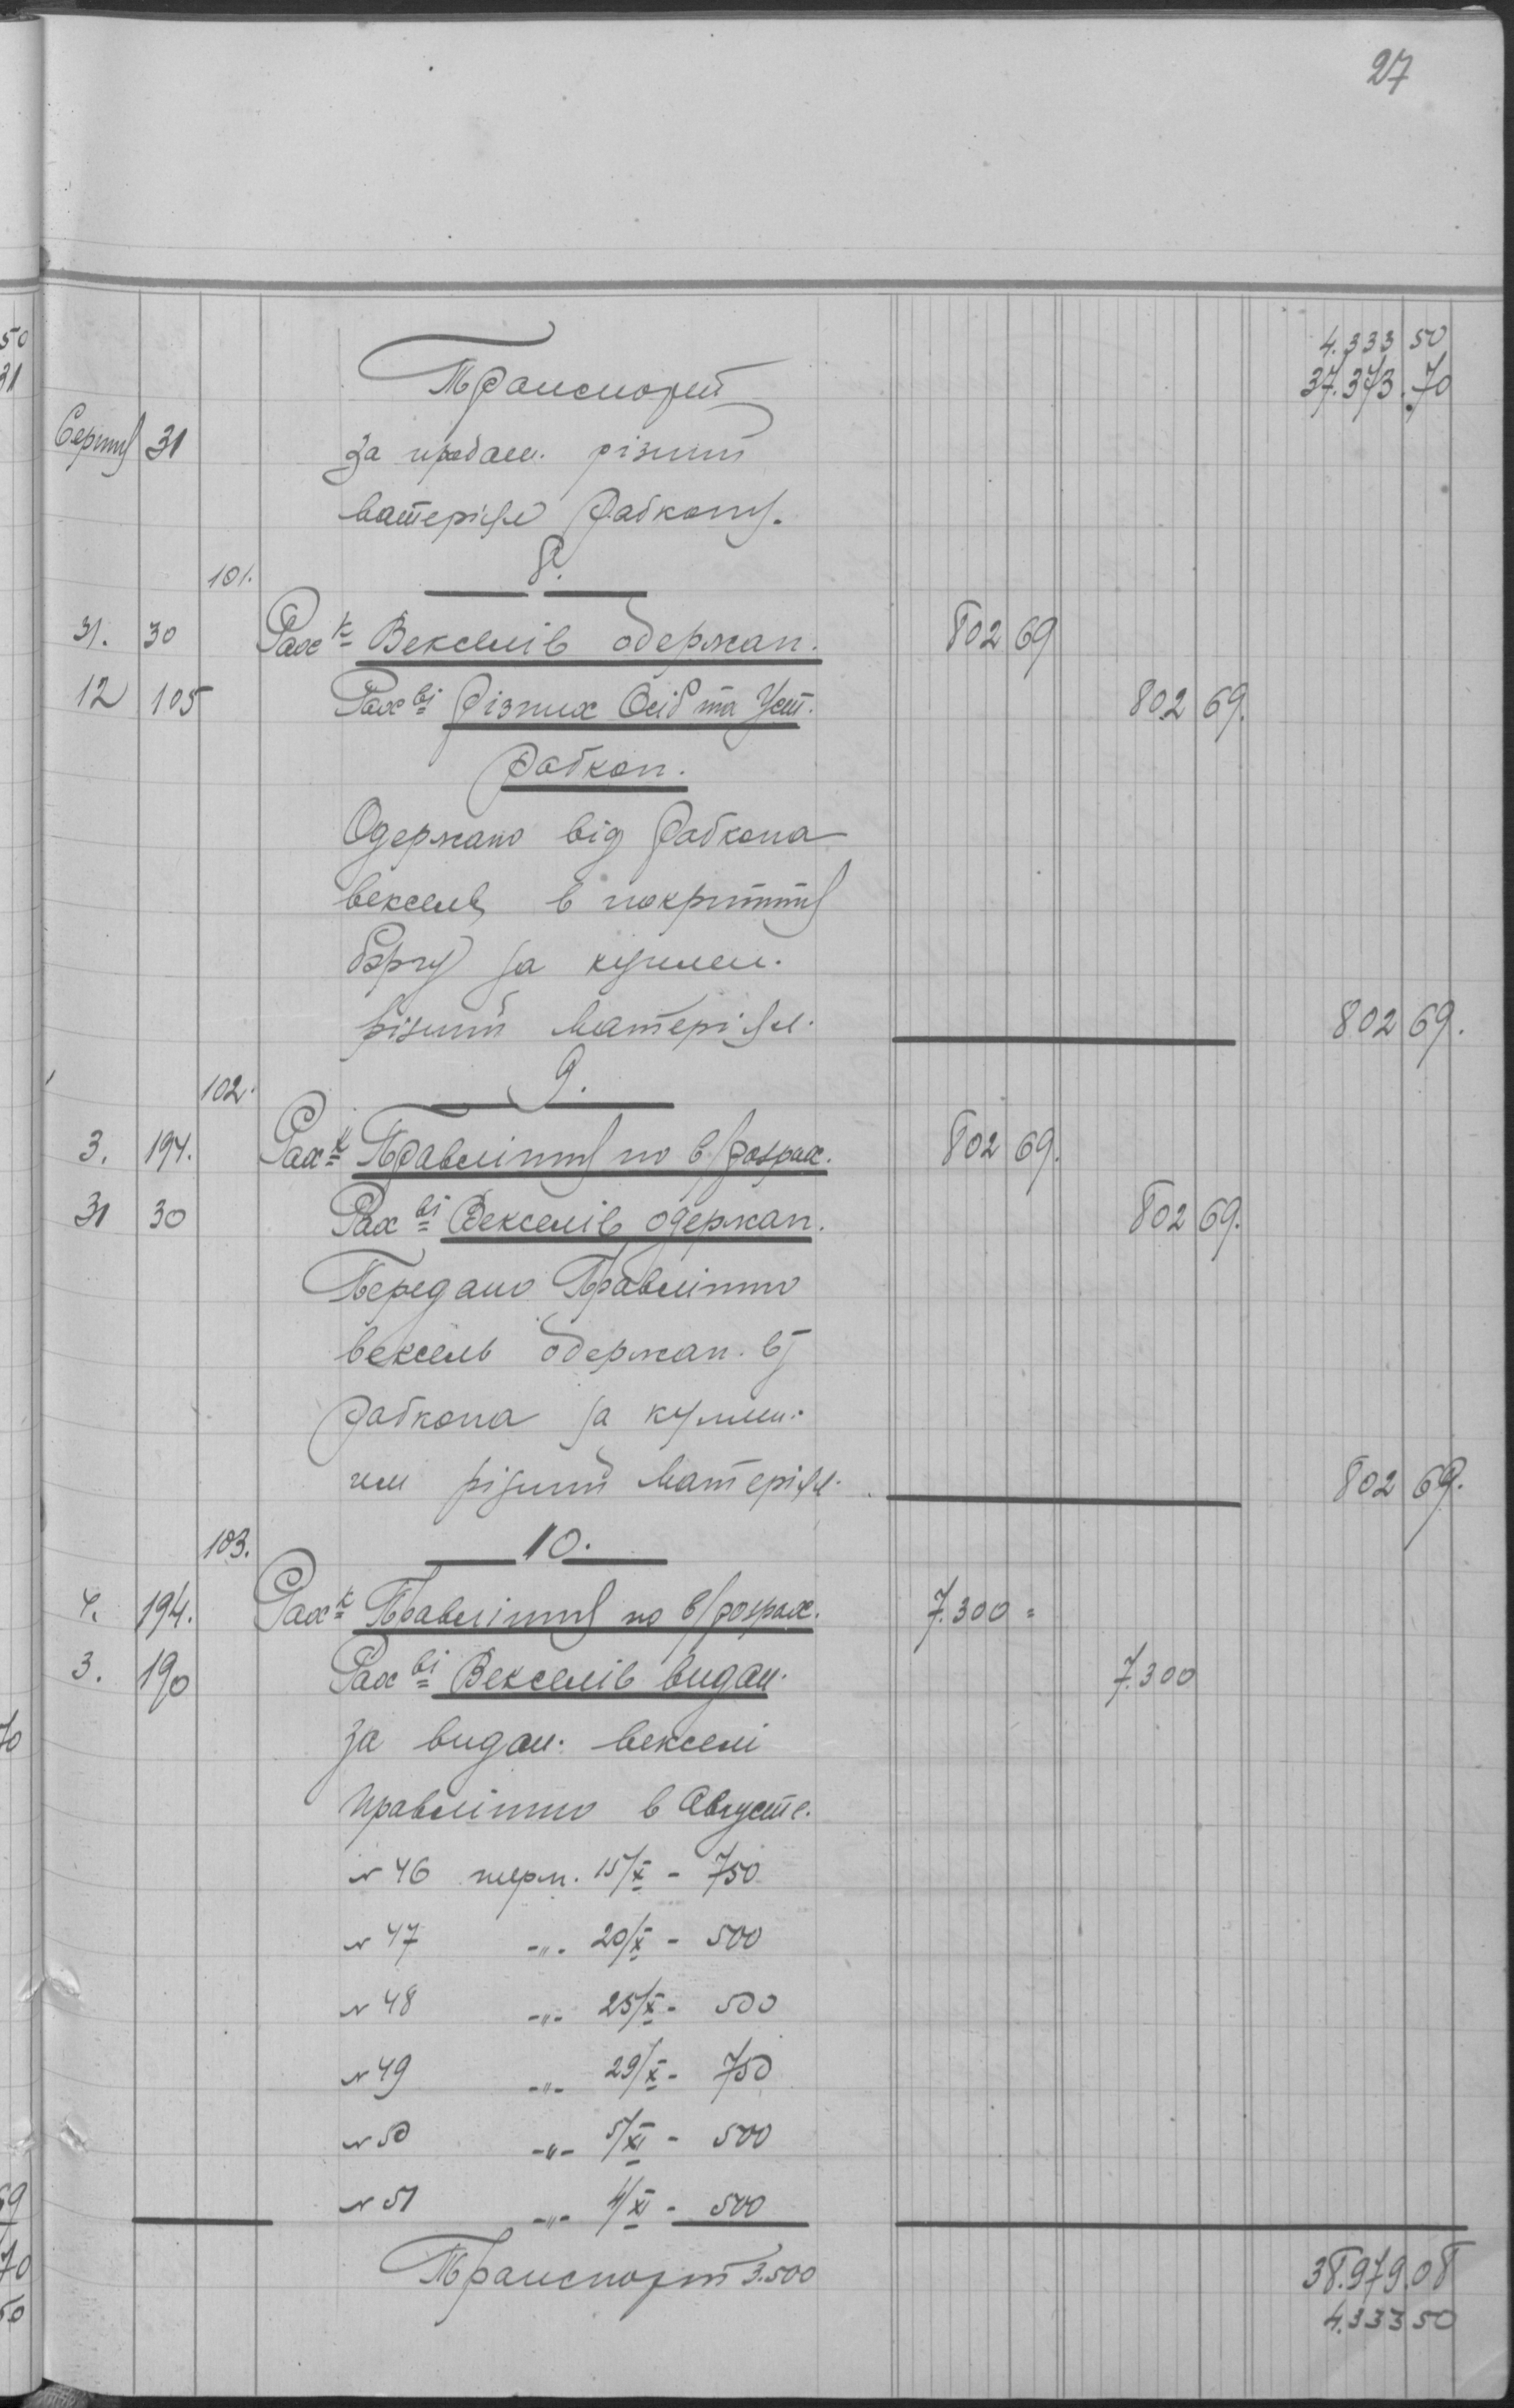 27
4.333 50
Транспорт 37.373.70
Серпня 31 За продан. різний
матеріял Рабкопу.
101. 8.
31. 30 Рах к Векселів одержан. 802 69
12 105 Рах ві Різних Осіб та Уст. 802 69.
Рабкоп.
Одержано від Рабкопа
вексель в покриття
боргу за куплен.
різний матеріял. 802 69.
102. 9.
3. 194. Рах к Правління по в/розрах. 802 69.
31 30 Рах ві Векселів одержан. 802 69.
Передано Правлінню
вексель одержан. від
Рабкопа за куплен.
ним різний матеріял. 802 69.
103. 10.
4. 194. Рах к Правління по в/розрах. 7.300=
3. 190 Рах ві Векселів видан. 7.300
За видан. векселі
правлінню в Августе.
№ 46 терм. 15/X - 750
№ 47 -"- 20/X - 500
№ 48 -"- 25/X - 500
№ 49 -"- 29/X - 750
№ 50 -"- 5/XI - 500
№ 51 -"- 4/XI - 500
Транспорт 3.500 38.979.08
4.333 50
50
31
70
69
70
50